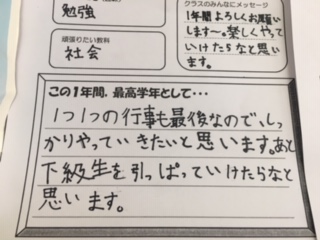 勉強
頑張りたい教科
社会
クラスのみんなにメッセージ
1年間よろしくお願い
します〜。楽しくやって
いけたらなと思い
ます。
この1年間、最高学年として・・・
1つ1つの行事も最後なので、しっ
かりやっていきたいと思います。あと
下級生を引っぱっていけたらなと
思います。